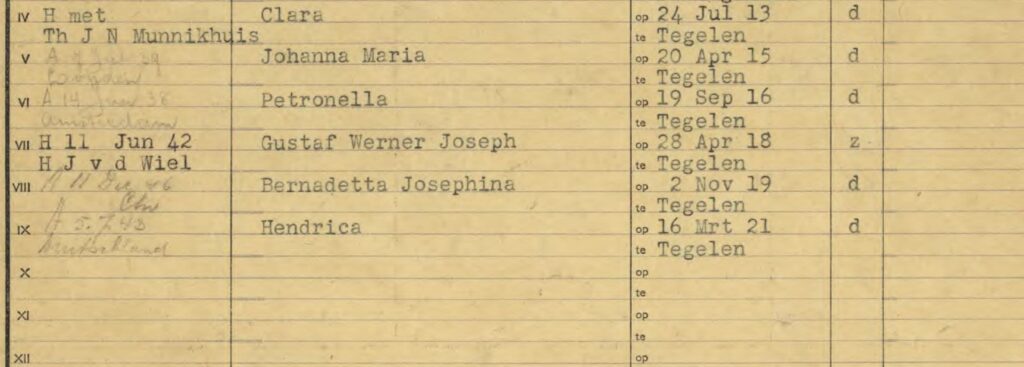 IV H met Clara op 24 Jul 13 d
Th J N Munnikhuis te Tegelen
V A Johanna Maria op 20 Apr 15 d
te Tegelen
VI A 14 38 Petronella op 19 Sep 16 d
Amsterdam te Tegelen
VII H 11 Jun 42 Gustaf Werner Joseph op 28 Apr 18 z
H J v d Wiel te Tegelen
VIII Dec 46 Bernadetta Josephina op 2 Nov 19 d
te Tegelen
IX 5.7.43 Hendrica op 16 Mrt 21 d
Deutschland te Tegelen
X op
te
XI op
te
XII op